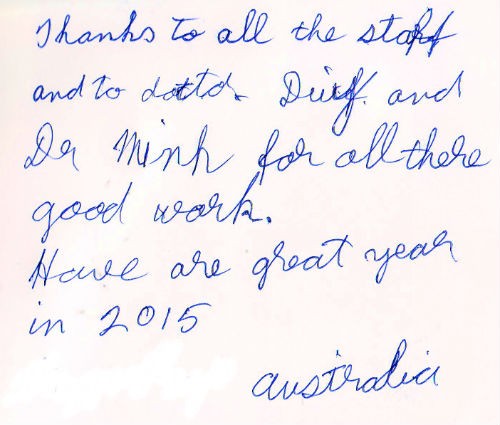 Thanks to all the staff
and to and
Dr Minh for all there
good work.
Have are great year
in 2015
australia